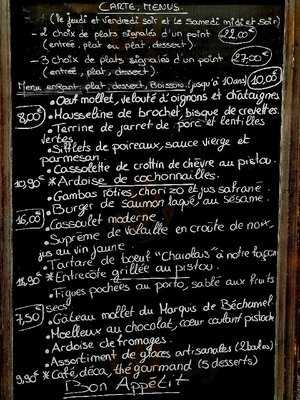 CARTE, MENUS
(le jeudi et vendredi soir et le samedi midi et soir)
- 2 choix de plats signalés d'un point 22,00€
(entrée, plat ou plat, dessert).
- 3 choix de plats signalés d'un point 27,00€
(entrée, plat, dessert).
Menu enfant: plat, dessert, Boisson (jusqu'à 10ans) 10,00€
• Oeuf mollet, velouté d'oignons et châtaignes
8,00€ • Mousseline de brochet, bisque de crevettes.
• Terrine de jarret de porc et lentilles
vertes.
• Sifflets de poireaux, sauce vierge et
parmesan.
• Cassolette de crottin de chèvre au pistou.
10,90€ * Ardoise de cochonnailles.
• Gambas rôties, chorizo et jus safrané.
• Burger de saumon laqué au sésame.
16,00€ • Cassoulet moderne.
• Suprême de volaille en croûte de noix,
jus au vin jaune.
• Tartare de boeuf "Charolais" à notre façon
18,90€ * Entrecôte grillée au pistou.
• Figues pochées au porto, sablé aux fruits
secs
7,50€ • Gâteau mollet du Marquis de Béchamel
• Moelleux au chocolat, coeur coulant pistache
• Ardoise de fromages.
• Assortiment de glaces artisanales (2 boules)
9,90€ * Café, déca, thé gourmand (5 desserts)
Bon Appétit